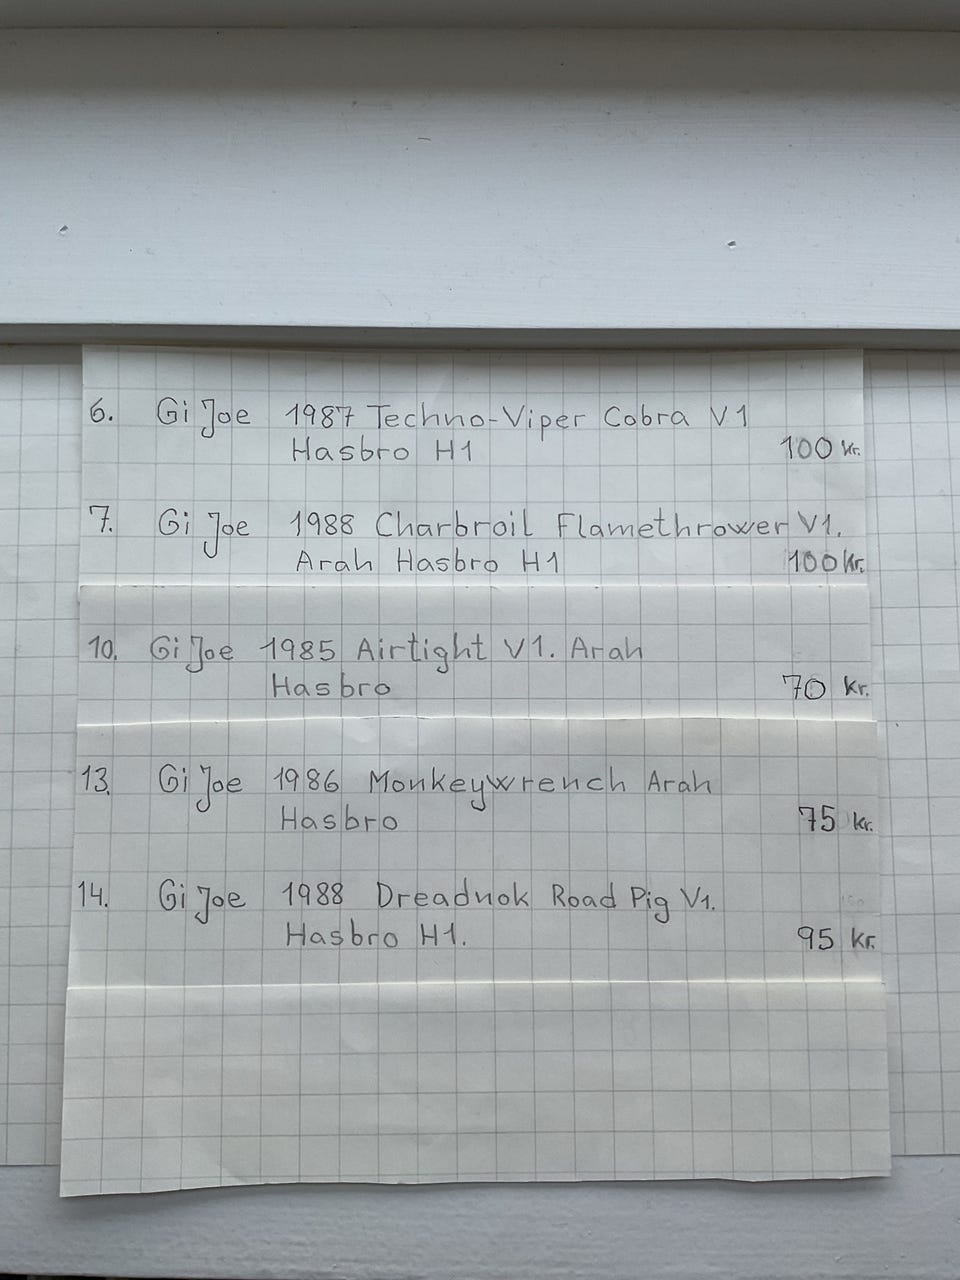 6. Gi Joe 1987 Techno-Viper Cobra V1
Hasbro H1 100 kr.
7. Gi Joe 1988 Charbroil Flamethrower V1.
Arah Hasbro H1 100 kr.
10. Gi Joe 1985 Airtight V1. Arah
Hasbro 70 kr.
13. Gi Joe 1986 Monkeywrench Arah
Hasbro 75 kr.
14. Gi Joe 1988 Dreadnok Road Pig V1.
Hasbro H1. 95 kr.